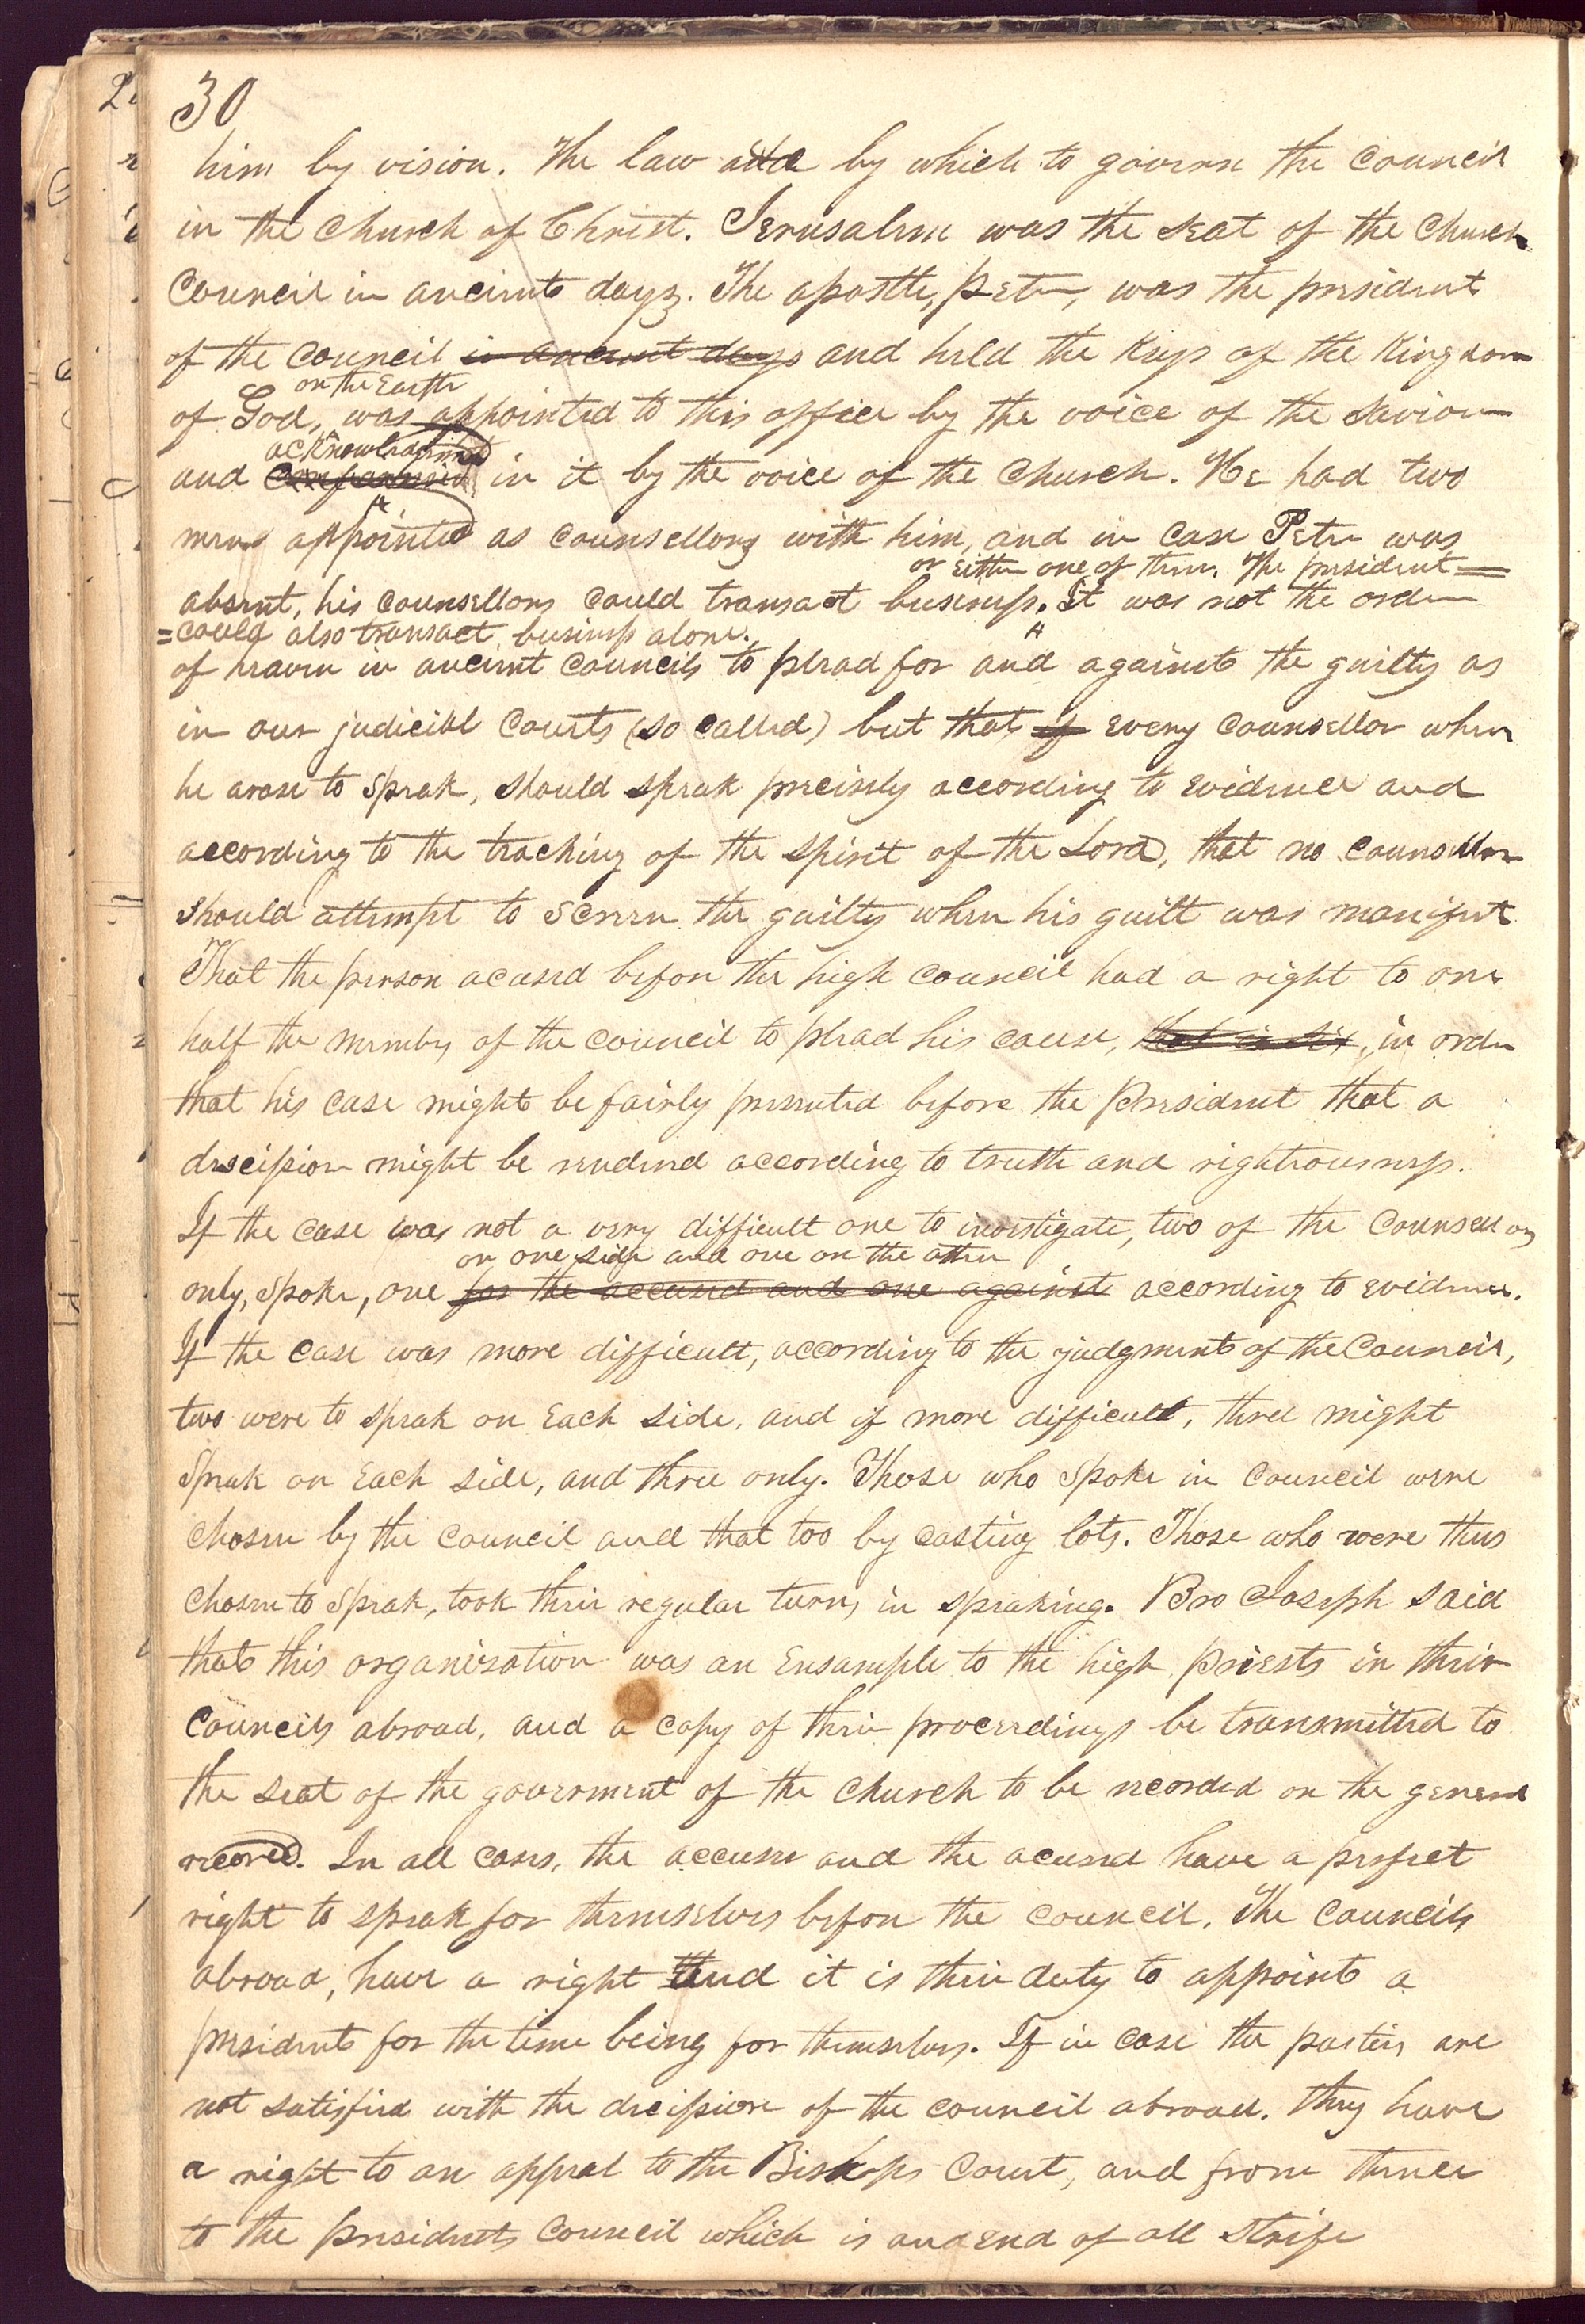 30
him by vision. The law by which to govern the Council
in the Church of Christ. Jerusalem was the seat of the Church
Council in ancient days. The apostle, Peter, was the president
of the Council in ancient days and held the Keys of the Kingdom
on the Earth
of God, was appointed to this office by the voice of the Saviour
acknowledged
and in it by the voice of the Church. He had two
men appointed as counsellors with him, and in case Peter was
or either one of them. The president=
absent, his counsellors could transact business. It was not the order
=could also transact business alone.
of heaven in ancient councils to plead for and against the guilty as
in our judicial Courts (so called) but that if every counsellor when
he arose to speak, should speak precisely according to evidence and
according to the teaching of the spirit of the Lord, that no counsellor
should attempt to screen the guilty when his guilt was manifest
That the person acused before the high council had a right to one
half the members of the council to plead his cause, that is six, in order
that his case might be fairly presented before the President that a
descission might be rendered according to truth and righteousness.
If the case was not a very difficult one to investigate, two of the counsellors
on one side and one on the other
only, spoke, one for the accused and one against according to evidence.
If the case was more difficult, according to the judgment of the Council,
two were to speak on Each side, and if more difficult, three might
Speak on Each side, and three only. Those who spoke in council were
chosen by the council and that too by casting lots. Those who were thus
chosen to speak, took their regular turns in speaking. Bro Joseph said
that this organization was an Ensample to the high priests in their
Councils abroad, and a copy of their proceedings be transmitted to
the seat of the government of the Church to be recorded on the general
record. In all cases, the accuser and the acused have a perfect
right to speak for themselves before the council. The Councils
abroad, have a right and it is their duty to appoint a
president for the time being for themselves. If in case the parties are
not satisfied with the decission of the council abroad, they have
a right to an appeal to the Bishops Court, and from thence
to the presidents Council which is and End of all Strife